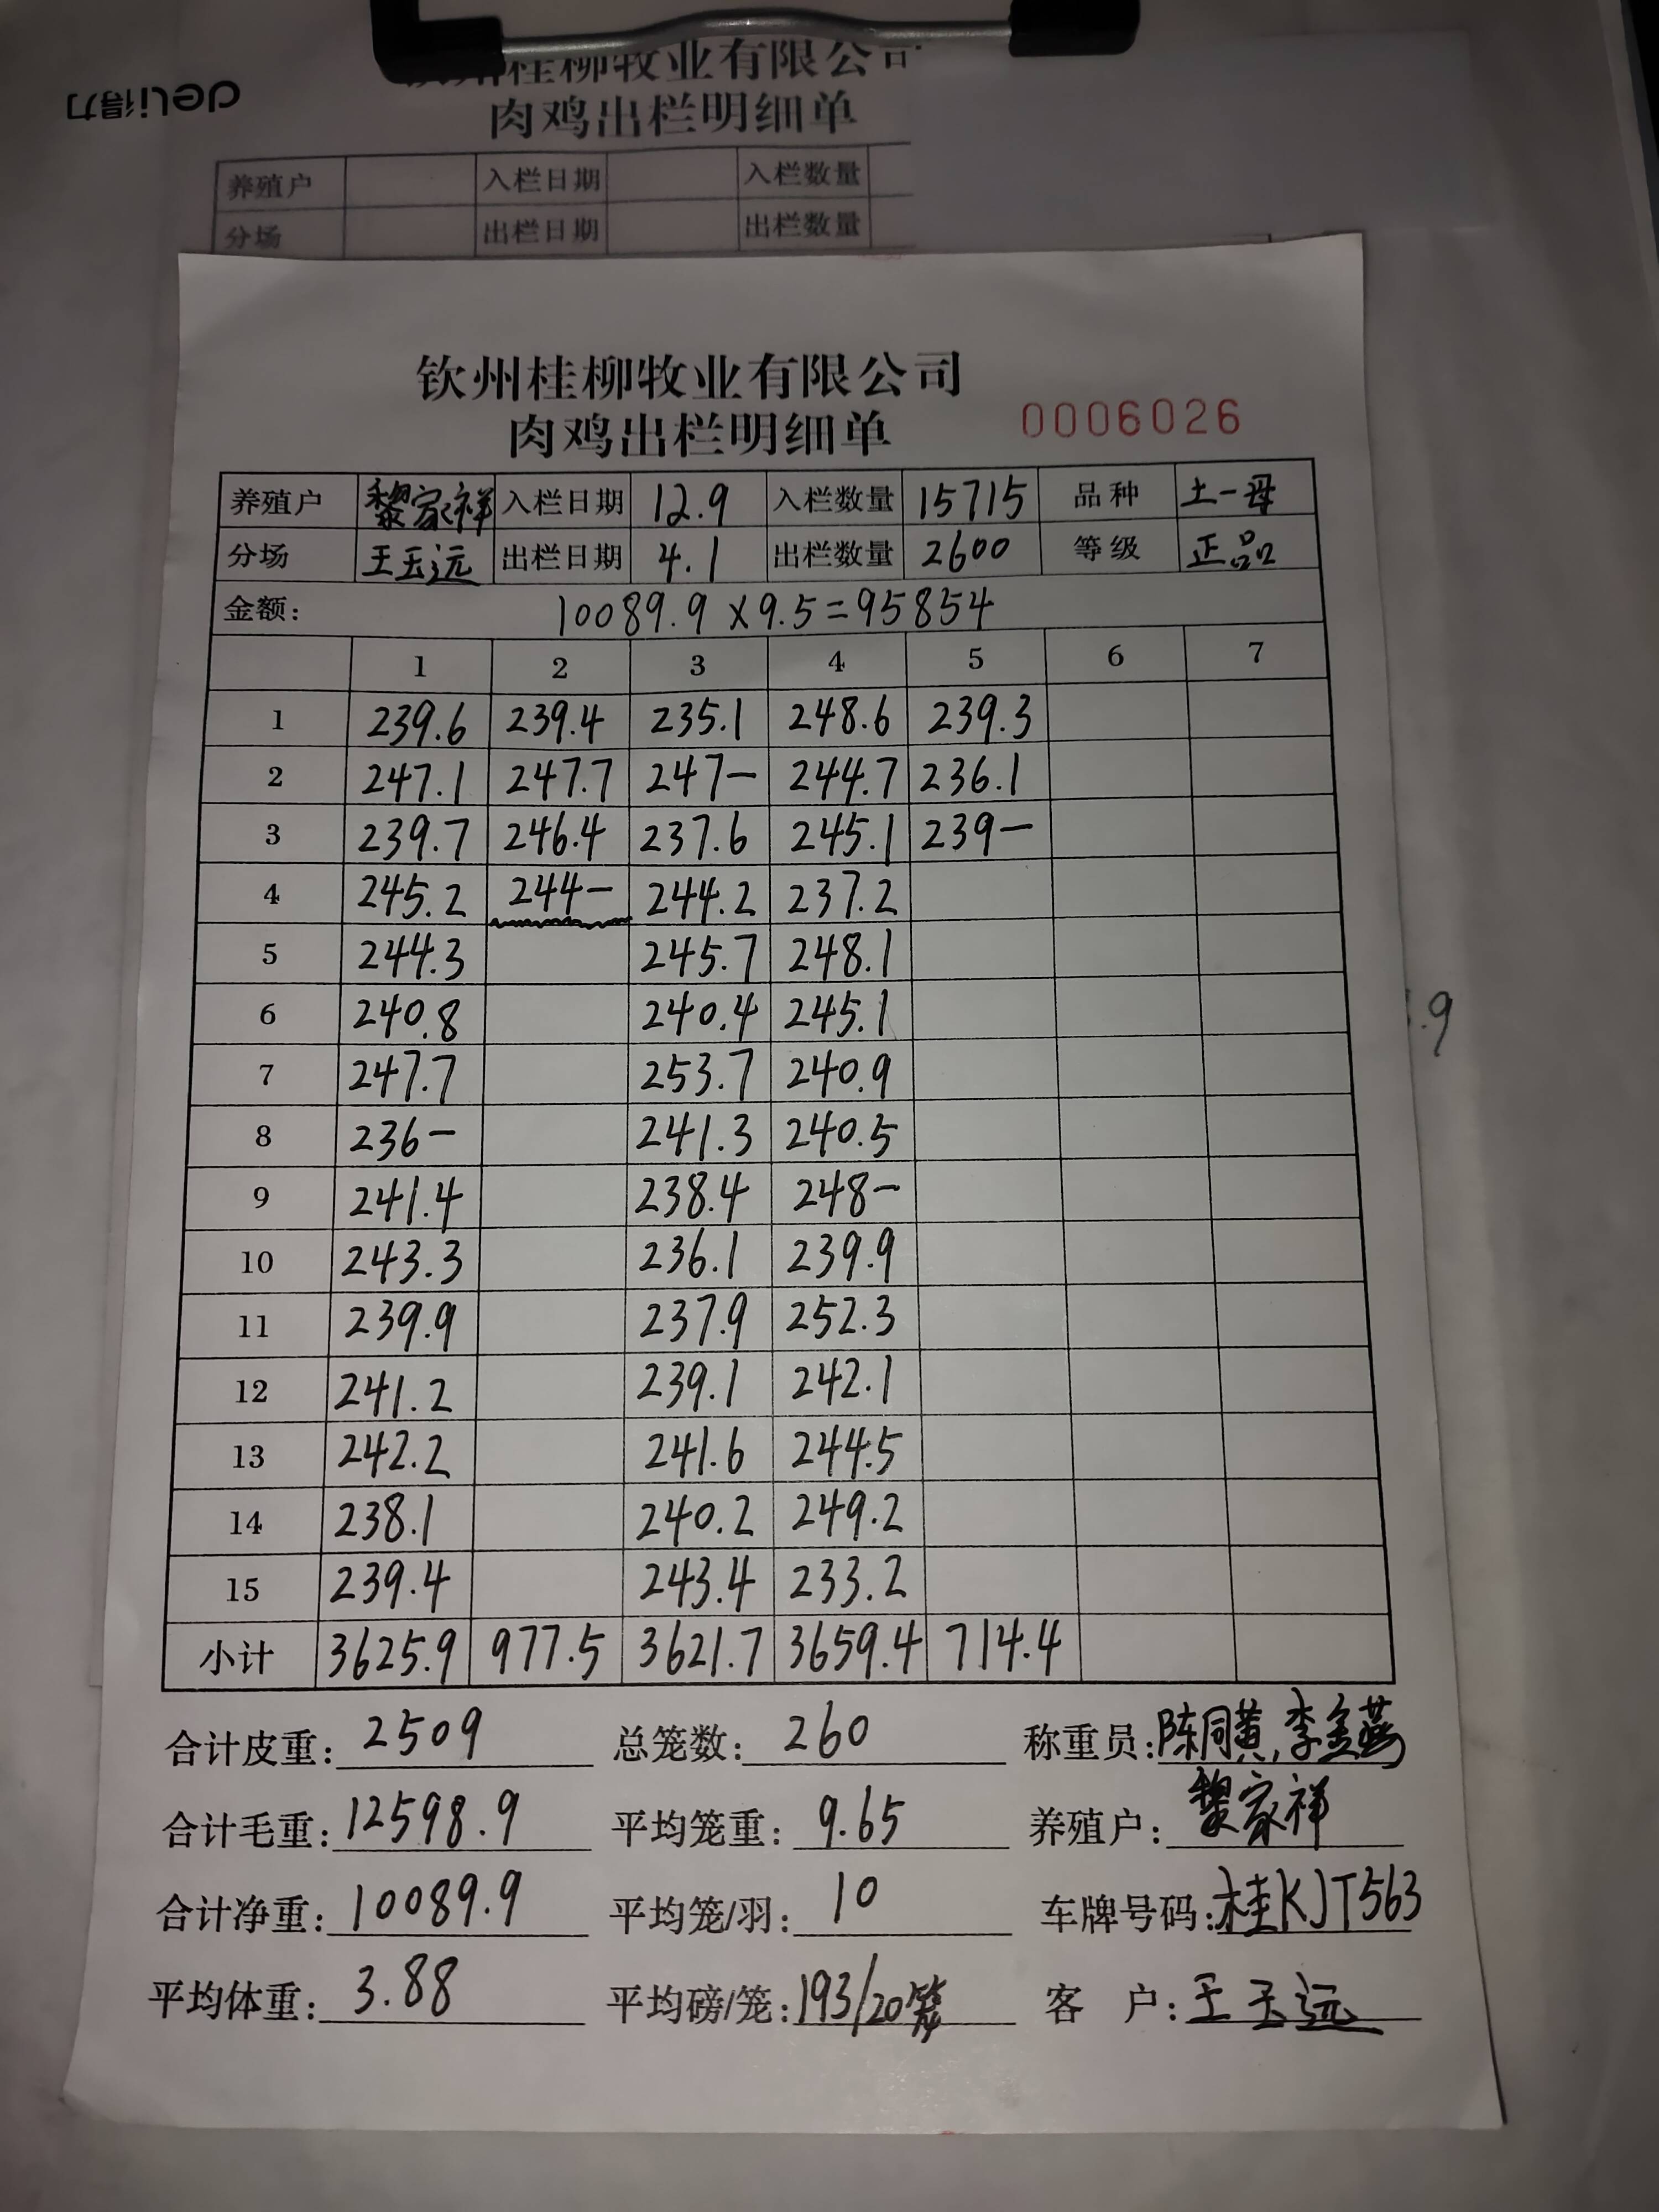 deli得力
钦州桂柳牧业有限公司
肉鸡出栏明细单
养殖户 入栏日期 入栏数量
分场 出栏日期 出栏数量
钦州桂柳牧业有限公司
肉鸡出栏明细单 0006026
养殖户 黎家祥 入栏日期 12.9 入栏数量 15715 品种 土一母
分场 王玉远 出栏日期 4.1 出栏数量 2600 等级 正品
金额: 10089.9×9.5=95854
1 2 3 4 5 6 7
1 239.6 239.4 235.1 248.6 239.3
2 247.1 247.7 247- 244.7 236.1
3 239.7 246.4 237.6 245.1 239-
4 245.2 244- 244.2 237.2
5 244.3 245.7 248.1
6 240.8 240.4 245.1
7 247.7 253.7 240.9
8 236- 241.3 240.5
9 241.4 238.4 248-
10 243.3 236.1 239.9
11 239.9 237.9 252.3
12 241.2 239.1 242.1
13 242.2 241.6 244.5
14 238.1 240.2 249.2
15 239.4 243.4 233.2
小计 3625.9 977.5 3621.7 3659.4 714.4
合计皮重: 2509 总笼数: 260 称重员: 陈同黄,李金燕
合计毛重: 12598.9 平均笼重: 9.65 养殖户: 黎家祥
合计净重: 10089.9 平均笼/羽: 10 车牌号码: 桂KJT563
平均体重: 3.88 平均磅/笼: 193/20笼 客户: 王玉远
.9